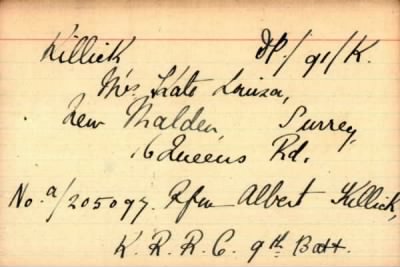 Killick DP/91/K.
Mrs. Kate Louisa,
New Malden, Surrey,
16 Queens Rd.
No. a/205097. Rfm Albert Killick,
K. R. R. C. 9th Batt.